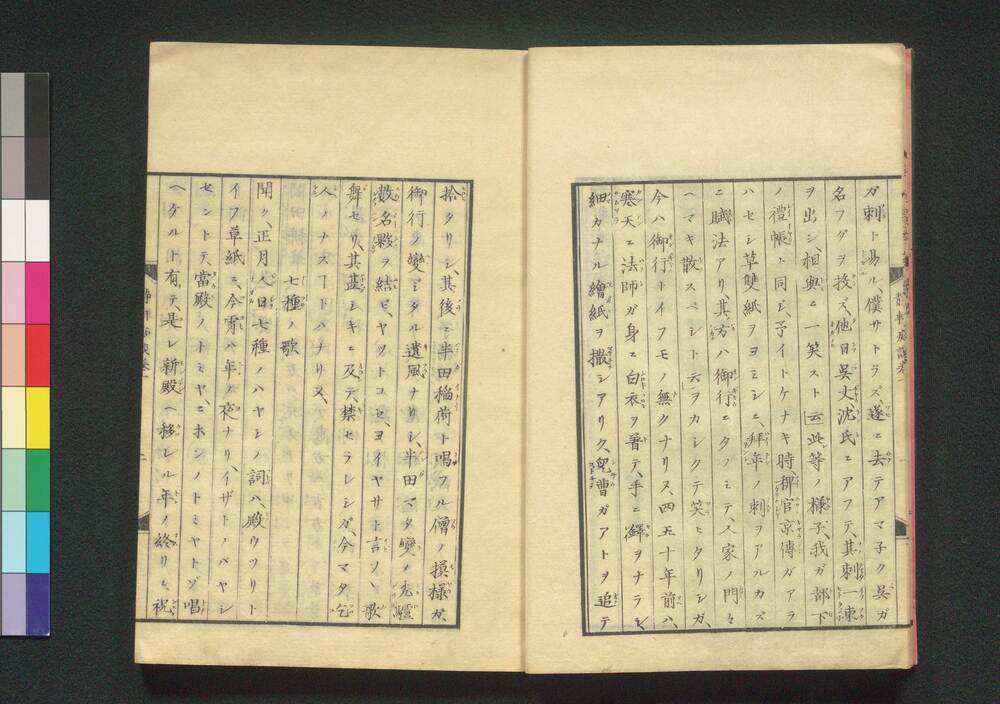 ガ刺ト易ル、僕サトラズ、遂ニ去テアマ子ク呉ガ
名フダヲ投ズ、他日呉丈沈氏ニアフテ、其刺一束
ヲ出シ、相與ニ一笑スト云、此等ノ様子、我ガ部下
ノ禮帳ト同シ、予イトケナキ時、稗官京傳ガアラ
ハセシ草雙紙ヲヨミシニ、拜年ノ刺ヲアルカズ
ニ賦法アリ、其方ハ御行ニタノミテ、人家ノ門々
ヘマキ散スベシト云ヲカシクテ笑ヒタリシガ、
今ハ御行トイフモノ無クナリヌ、四五十年前ハ、
寒天ニ法師ガ身ニ白衣ヲ著テ、手ニ鐸ヲナラシ、
細カナル繪紙ヲ撒シアリク、兒曹ガアトヲ追テ
拾タリシ、其後ニ半田稲荷ト唱フル僧ノ摸様ガ、
御行ヲ變ジタル遺風ナリシ、半田マタ變ノ
數名夥ヲ結ビ、ヤツトコセ、ヨイヤサト言ツヽ歌
舞セリ、其甚シキニ及テ、禁セラレシガ、今マタ乞
人ノナスコトハナリヌ、
七種ノ歌
聞ク、正月人日七種ノハヤシノ詞ハ、殿ウツリト
イフ草紙ニ、今宵ハ年ノ夜ナリ、イザトノバヤシ
セントテ、當殿ノトミヤ、ニホンノトミヤトゾ唱
ヘケル下有テ、是レ新殿ヘ移レル年ノ終リニ、祝